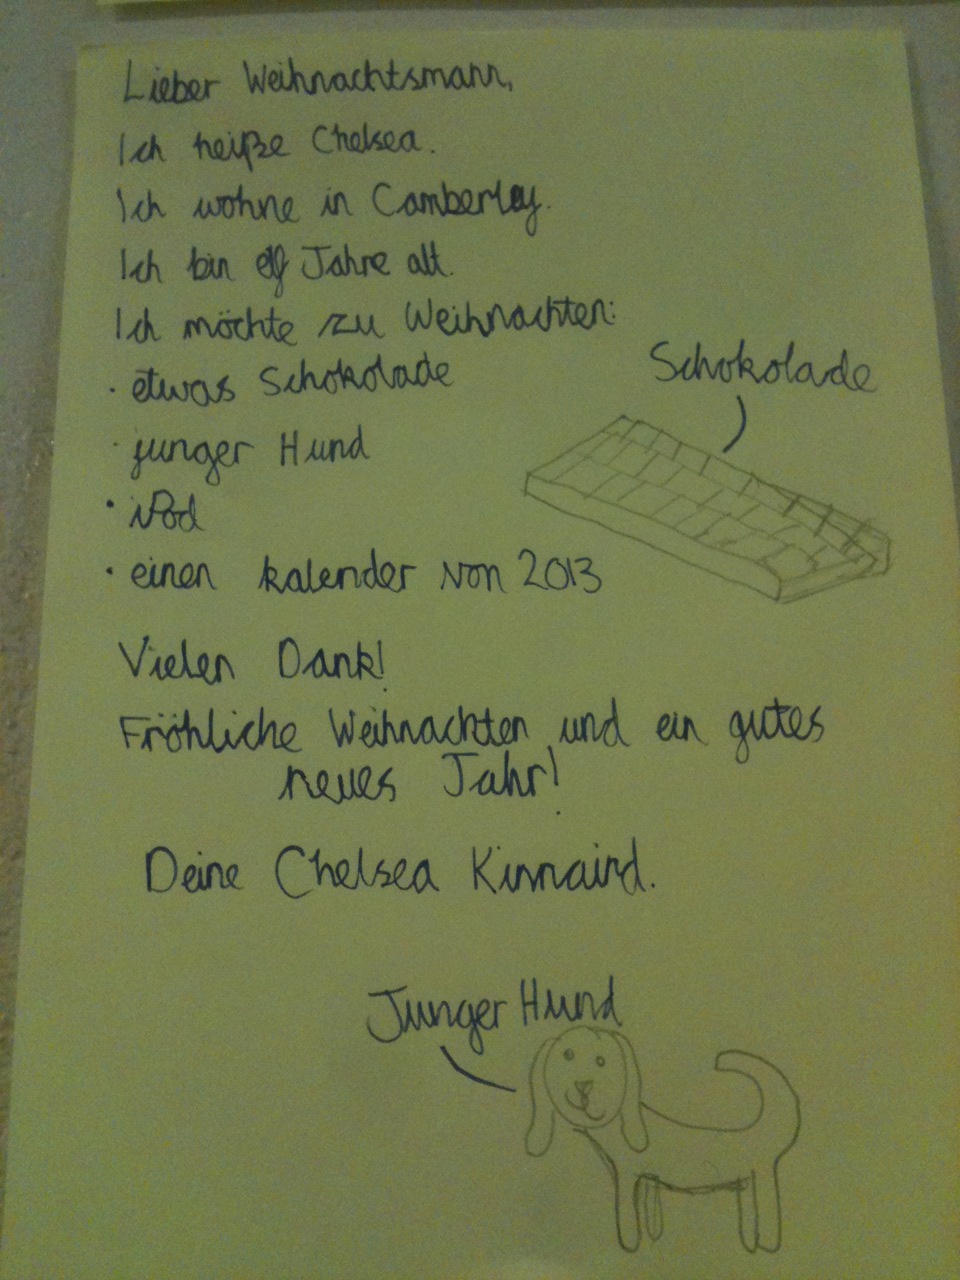 Lieber Weihnachtsmann,
Ich heiße Chelsea.
Ich wohne in Camberley.
Ich bin elf Jahre alt.
Ich möchte zu Weihnachten:
· etwas Schokolade
Schokolade
· junger Hund
· iPod
· einen kalender von 2013
Vielen Dank!
Fröhliche Weihnachten und ein gutes
neues Jahr!
Deine Chelsea Kinnaird.
Junger Hund